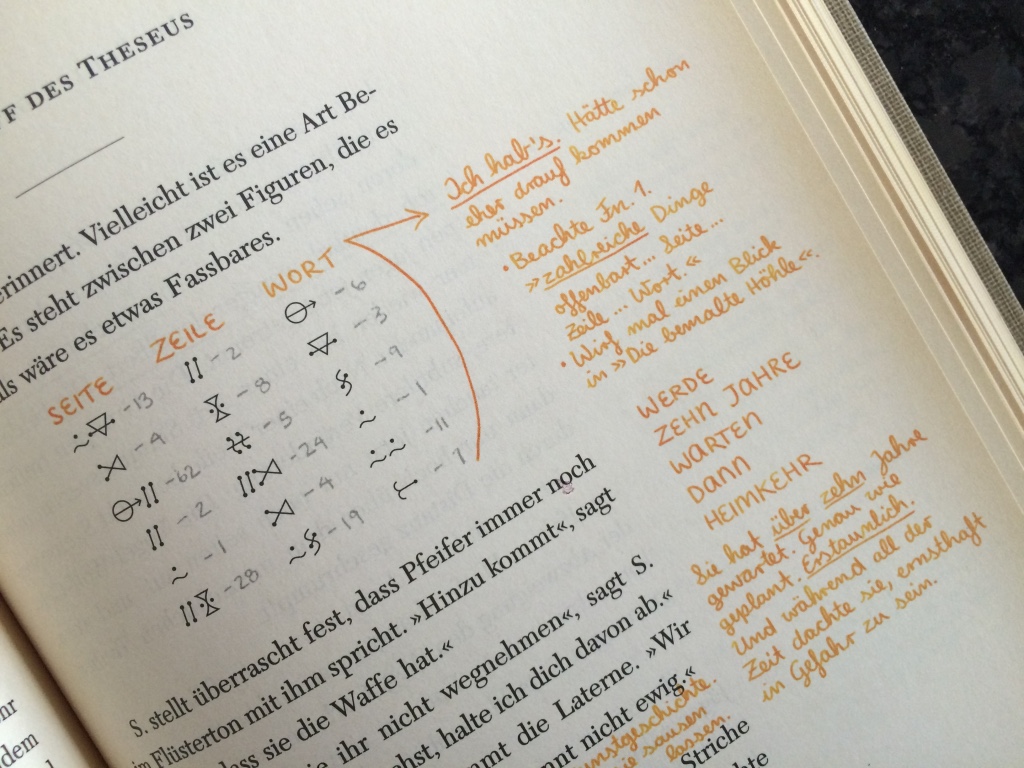 F DES THESEUS
erinnert. Vielleicht ist es eine Art Be-
Es steht zwischen zwei Figuren, die es
als wäre es etwas Fassbares.
SEITE ZEILE WORT
-13 -2 -6
-4 -8 -3
-62 -5 -9
-2 -29 -1
-1 -4 -11
-28 -19 -7
S. stellt überrascht fest, dass Pfeifer immer noch
im Flüsterton mit ihm spricht. »Hinzu kommt«, sagt
dass sie die Waffe hat.«
ihr nicht wegnehmen«, sagt S.
halte ich dich davon ab.«
die Laterne. »Wir
nicht ewig.«
Striche
Ich hab's. Hätte schon
eher drauf kommen
müssen.
• Beachte Fn. 1.
»zahlreiche Dinge
offenbart... Seite...
Zeile... Wort.«
• Wirf mal einen Blick
in »Die bemalte Höhle«.
WERDE
ZEHN JAHRE
WARTEN
DANN
HEIMKEHR
Sie hat über zehn Jahre
gewartet. Genau wie
geplant. Erstaunlich.
Und während all der
Zeit dachte sie, ernsthaft
in Gefahr zu sein.
sausen
lassen.